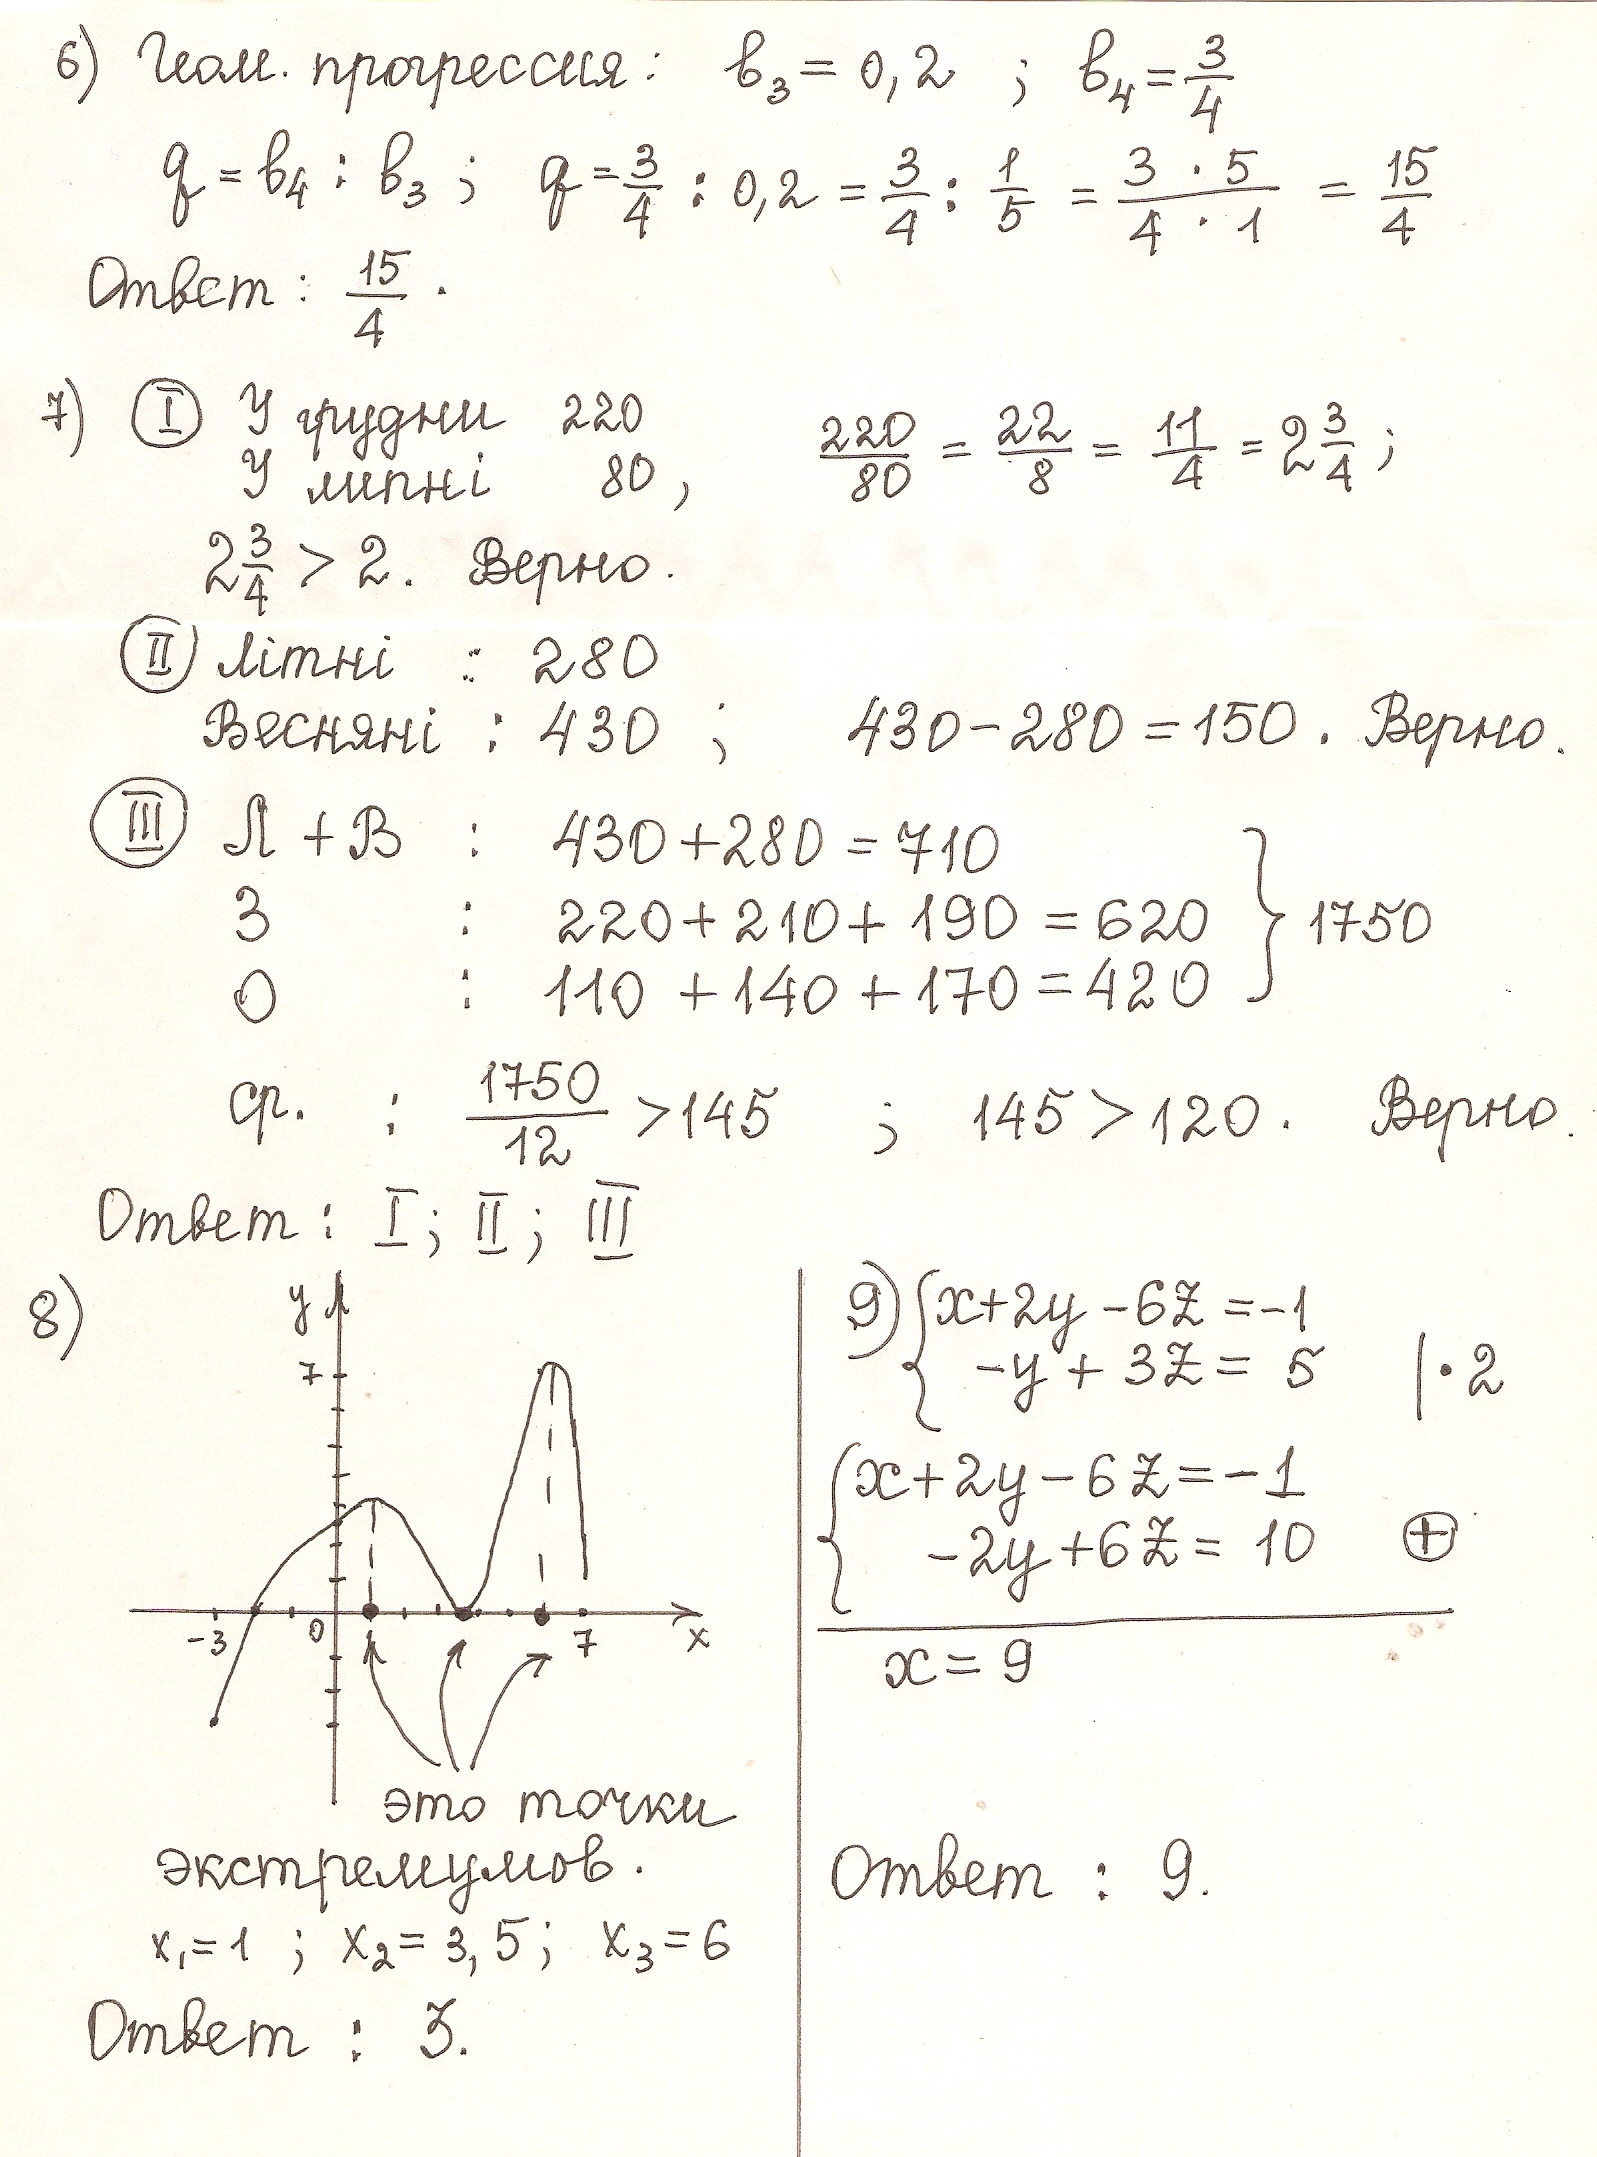 6) Геом. прогрессия: b₃ = 0,2 ; b₄ = 3/4
q = b₄ : b₃ ; q = 3/4 : 0,2 = 3/4 : 1/5 = (3 · 5)/(4 · 1) = 15/4
Ответ : 15/4 .
7) I У грудни 220
220/80 = 22/8 = 11/4 = 2 3/4 ;
У липні 80 ,
2 3/4 > 2. Верно.
II Літні : 280
Весняні : 430 ; 430 - 280 = 150 . Верно.
III Л + В : 430 + 280 = 710
З : 220 + 210 + 190 = 620 } 1750
О : 110 + 140 + 170 = 420
ср. : 1750/12 > 145 ; 145 > 120 . Верно.
Ответ : I ; II ; III
8)
y
7
-3 0 7 x
это точки
экстремумов.
x₁ = 1 ; x₂ = 3,5 ; x₃ = 6
Ответ : 3.
9) { x + 2y - 6z = -1
-y + 3z = 5 | · 2
{ x + 2y - 6z = -1
-2y + 6z = 10 ⊕
x = 9
Ответ : 9.